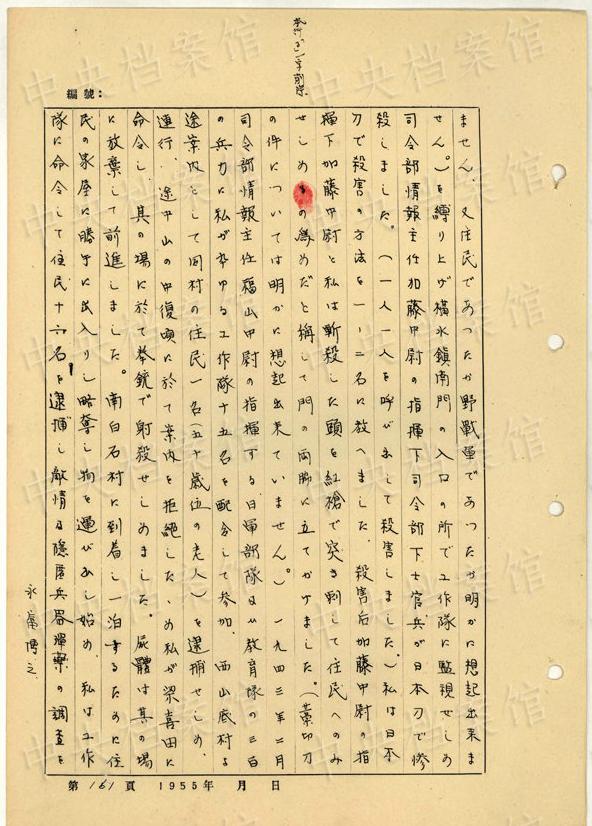 本行「ざ」一字削除
編號：
ません、又住民であつたか野戰軍であつたか明かに想起出来ま
せん。）を縛り上げ橫水鎮南門の入口の所で工作隊に監視せしめ
司令部情報主任加藤中尉の指揮下司令部下士官兵が日本刀で惨
殺しました。（一人一人を呼び出して殺害しました。）私は日本
刀で殺害の方法を一、二名に教へました。殺害后加藤中尉の指
揮下加藤中尉と私は斬殺した頭を紅槍で突き刺して住民へのみ
せしめの為めだと称して門の両脇に立てかけました。（藁切刀
の件については明かに想起出来ていません。）一九四三年二月
司令部情報主任福山中尉の指揮する日軍部隊及教育隊の三百
の兵力に私が率ゆる工作隊十五名を配分して参加、西山底村よ
途案内として同村の住民一名（五十歳位の老人）を逮捕せしめ、
連行、途中山の中復頃に於て案内を拒絶したため私が梁喜田に
命令し、其の場に於て拳銃で射殺せしめました。屍體は其の場
に放棄して前進しました。南白石村に到着し一泊するために住
民の家屋に勝手に民入りし略奪し物を運び出し始め、私は工作
隊に命令して住民十六名を逮捕し敵情及隠匿兵器彈藥の調査を
永富博之
第 161 頁 1955年 月 日
中央档案馆